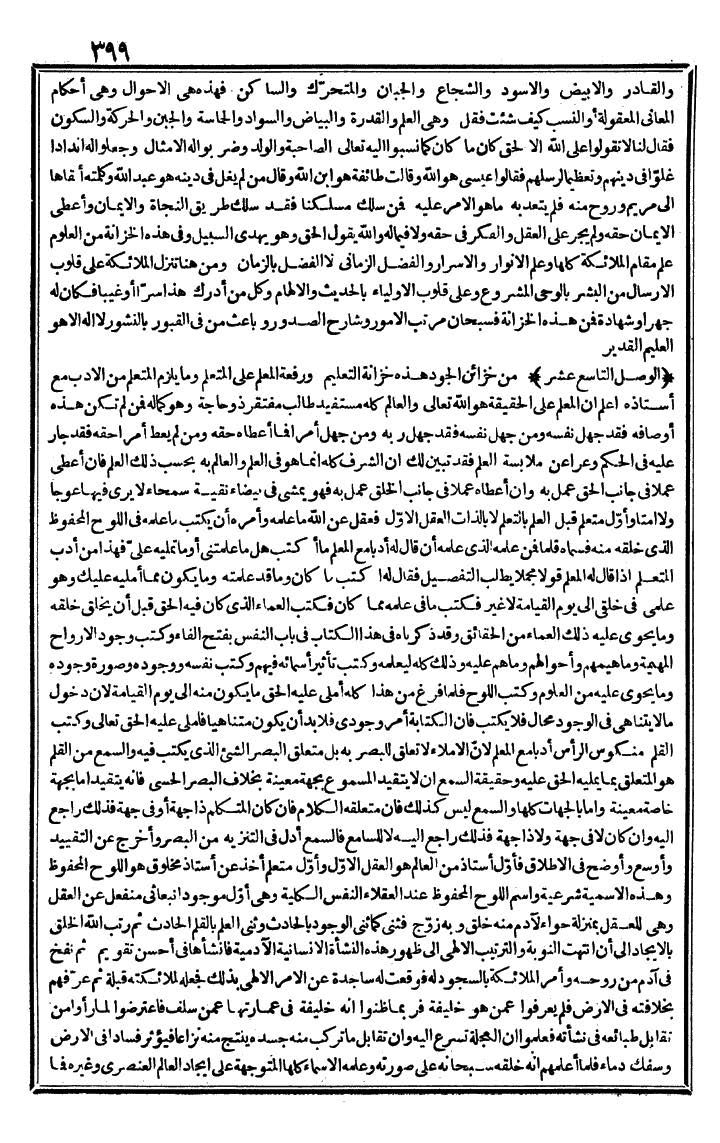 ٣٩٩
والقادر والابيض والاسود والشجاع والجبان والمتحرّك والساكن فهذه هى الاحوال وهى أحكام
المعانى المعقولة أو النسب كيف شئت فقل وهى العلم والقدرة والبياض والسواد والحاسة والجبن والحركة والسكون
فقال لنا لا تقولوا على الله الا الحق كان ما كان كما نسبوا اليه تعالى الصاحبة والولد وضربوا له الامثال وجعلوا له اندادا
غلوّا فى دينهم وتعظيما لرسلهم فقالوا عيسى هو الله وقالت طائفة هو ابن الله وقال من لم يغل فى دينه هو عبد الله وكلمته ألقاها
الى مريم وروح منه فلم يتعدّ به ما هو الامر عليه فمن سلك مسلكنا فقد سلك طريق النجاة والايمان وأعطى
الايمان حقه ولم يجر على العقل والفكر فى حقه ولا فيما له والله يقول الحق وهو يهدى السبيل وفى هذه الخزانة من العلوم
علم مقام الملائكة كلها وعلم الانوار والاسرار والفضل الزمانى لا الفضل بالزمان ومن هنا تنزل الملائكة على قلوب
الارسال من البشر بالوحى المشروع وعلى قلوب الاولياء بالحديث والالهام وكل من أدرك هذا سرّا أو غيبا فكان له
جهرا وشهادة فمن هذه الخزانة فسبحان مرتب الامور وشارح الصدور وباعث من فى القبور بالنشور لا اله الا هو
العليم القدير
﴿الوصل التاسع عشر﴾ من خزائن الجود هذه خزانة التعليم ورفعة المعلم على المتعلم وما يلزم المتعلم من الادب مع
أستاذه اعلم ان المعلم على الحقيقة هو الله تعالى والعالم كله مستفيد طالب مفتقر ذو حاجة وهو كماله فمن لم تكن هذه
أوصافه فقد جهل نفسه ومن جهل نفسه فقد جهل ربه ومن جهل أمرا فما أعطاه حقه ومن لم يعط أمرا حقه فقد جار
عليه فى الحكم وعرا عن ملابسة العلم فقد تبين لك ان الشرف كله انما هو فى العلم والعالم به بحسب ذلك العلم فان أعطى
عملا فى جانب الحق عمل به وان أعطاه عملا فى جانب الخلق عمل به فهو يمشى فى بيضاء نقية سمحاء لا يرى فيها عوجا
ولا أمتا وأوّل متعلم قبل العلم بالتعلم لا بالذات العقل الاوّل فعقل عن الله ما علمه وأمره أن يكتب ما علمه فى اللوح المحفوظ
الذى خلقه منه فسماه قلما فمن علمه الذى علمه أن قال له أدبا مع المعلم ما أكتب هل ما علمتنى أو ما تمليه علىّ فهذا من أدب
المتعلم اذا قال له المعلم قولا مجملا يطلب التفصيل فقال له اكتب ما كان وما قد علمته وما يكون مما أمليه عليك وهو
علمى فى خلقى الى يوم القيامة لا غير فكتب ما فى علمه مما كان فكتب العماء الذى كان فيه الحق قبل أن يخلق خلقه
وما يحوى عليه ذلك العماء من الحقائق وقد ذكرناه فى هذا الكتاب فى باب النفس بفتح الفاء وكتب وجود الارواح
المهيمة وما هيمهم وأحوالهم وما هم عليه وذلك كله ليعلمه وكتب تأثير أسمائه فيهم وكتب نفسه ووجوده وصورة وجوده
وما يحوى عليه من العلوم وكتب اللوح فلما فرغ من هذا كله أملى عليه الحق ما يكون منه الى يوم القيامة لان دخول
ما لا يتناهى فى الوجود محال فلا يكتب فان الكتابة أمر وجودى فلا بد أن يكون متناهيا فاملى عليه الحق تعالى وكتب
القلم منكوس الرأس أدبا مع المعلم لانّ الاملاء لا تعلق للبصر به بل متعلق البصر الشئ الذى يكتب فيه والسمع من القلم
هو المتعلق بما يمليه الحق عليه وحقيقة السمع ان لا يتقيد المسموع بجهة معينة بخلاف البصر الحسى فانه يتقيد اما بجهة
خاصة معينة واما بالجهات كلها والسمع ليس كذلك فان متعلقه الكلام فان كان المتكلم ذا جهة أو فى جهة فذلك راجع
اليه وان كان لا فى جهة ولا ذا جهة فذلك راجع اليه لا للسامع فالسمع أدل فى التنزيه من البصر وأخرج عن التقييد
وأوسع وأوضح فى الاطلاق فأوّل أستاذ من العالم هو العقل الاوّل وأوّل متعلم أخذ عن أستاذ مخلوق هو اللوح المحفوظ
وهذه الاسمية شرعية واسم اللوح المحفوظ عند العقلاء النفس الكلية وهى أوّل موجود انبعاثى منفعل عن العقل
وهى للعقل بمنزلة حواء لآدم منه خلق وبه زوّج فثنى كما ثنى الوجود بالحادث وثنى العلم بالقلم الحادث ثم رتب الله الخلق
بالايجاد الى أن انتهت النوبة والترتيب الالهى الى ظهور هذه النشأة الانسانية الآدمية فانشأها فى أحسن تقويم ثم نفخ
فى آدم من روحه وأمر الملائكة بالسجود له فوقعت له ساجدة عن الامر الالهى بذلك فجعله لملائكته قبلة ثم عرّفهم
بخلافته فى الارض فلم يعرفوا عمن هو خليفة فربما ظنوا انه خليفة فى عمارتها عمن سلف فاعترضوا لما رأوا من
تقابل طبائعه فى نشأته فعلموا ان العجلة تسرع اليه وان تقابل ما تركب منه جسده ينتج منه نزاعا فيؤثر فسادا فى الارض
وسفك دماء فلما أعلمهم انه خلقه سبحانه على صورته وعلمه الاسماء كلها المتوجهة على ايجاد العالم العنصرى وغيره فما